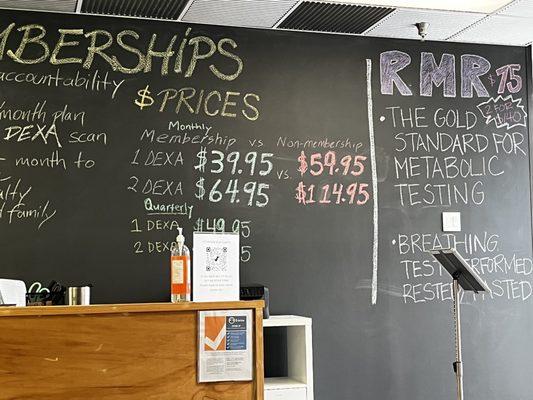 MBERSHIPS
accountability
month plan
DEXA scan
- month to
ty
d family
$ PRICES
Monthly
Membership vs Non-membership
1 DEXA $39.95 vs. $59.95
2 DEXA $64.95 $114.95
Quarterly
1 DEXA $49.95
2 DEXA
RMR $75
2 FOR $140
• THE GOLD
STANDARD FOR
METABOLIC
TESTING
• BREATHING
TEST PERFORMED
RESTED